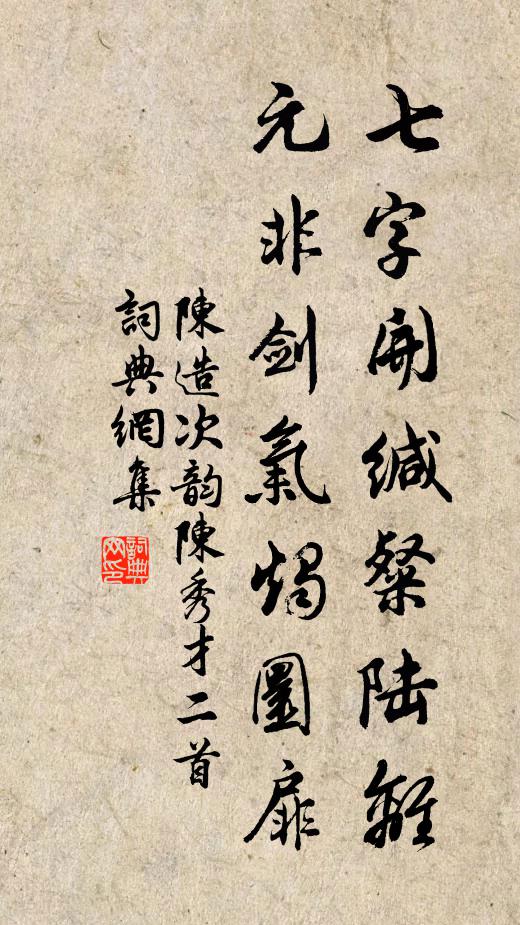 七字開緘粲陸離
元非劍氣燭圜扉
陳造次韵陳秀才二首
詞典網集
詞典网印